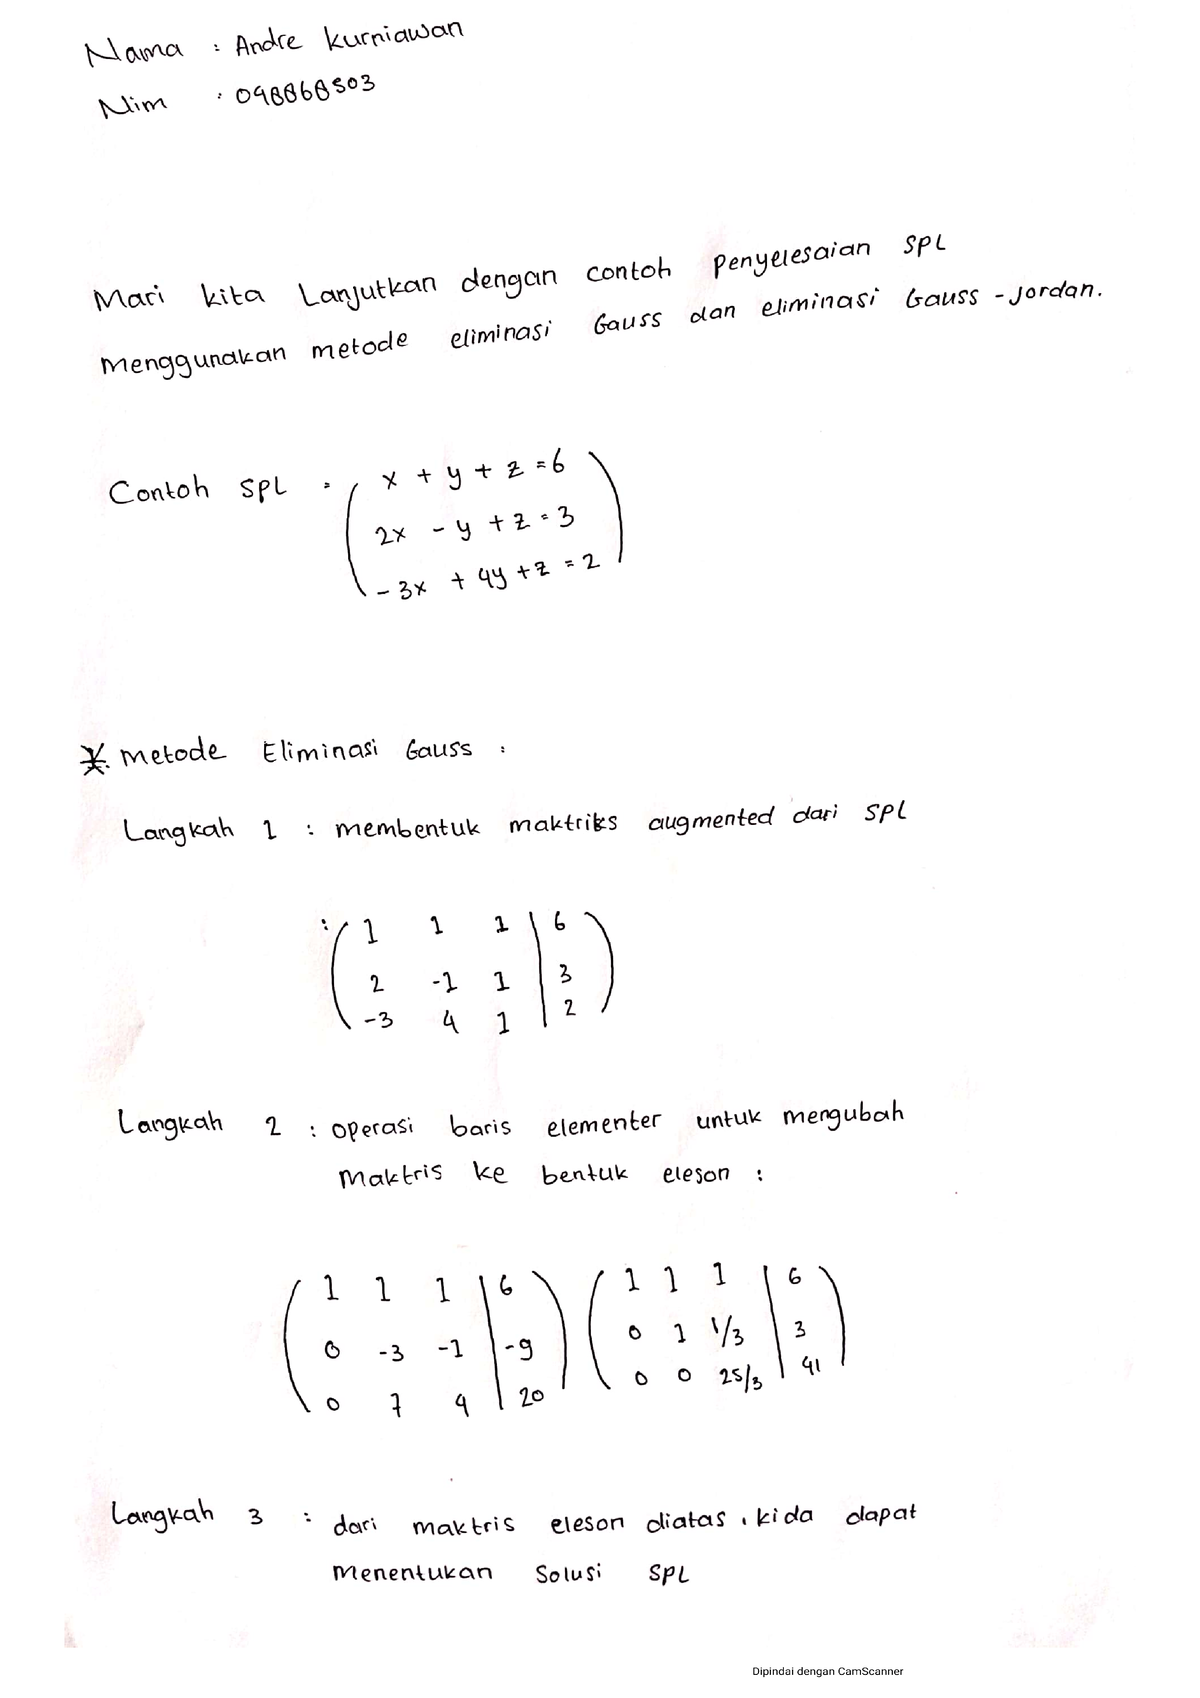 Nama : Andre Kurniawan
Nim : 048868503
Mari kita Lanjutkan dengan contoh Penyelesaian SPL
Menggunakan metode eliminasi Gauss dan eliminasi Gauss - Jordan.
Contoh SPL :
x + y + z = 6
2x - y + z = 3
- 3x + 4y + z = 2
*. Metode Eliminasi Gauss :
Langkah 1 : membentuk maktriks augmented dari SPL
: 1 1 1 | 6
2 -1 1 | 3
-3 4 1 | 2
Langkah 2 : operasi baris elementer untuk mengubah
Maktris ke bentuk eleson :
1 1 1 | 6 1 1 1 | 6
0 -3 -1 | -9 0 1 1/3 | 3
0 7 4 | 20 0 0 25/3 | 41
Langkah 3 : dari maktris eleson diatas , kida dapat
Menentukan Solusi SPL
Dipindai dengan CamScanner